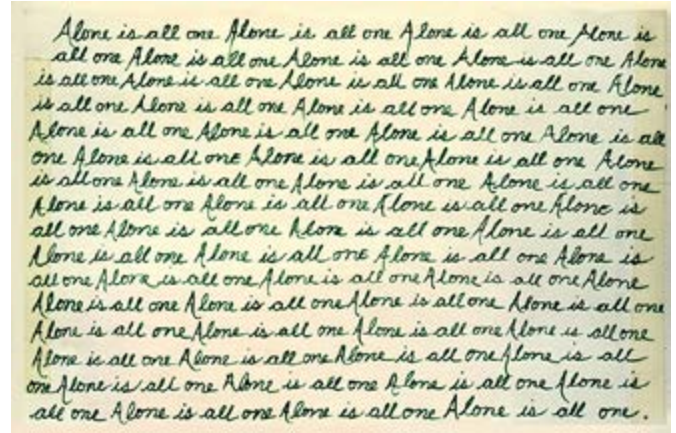 Alone is all one Alone is all one Alone is all one Alone is
all one Alone is all one Alone is all one Alone is all one Alone
is all one Alone is all one Alone is all one Alone is all one Alone
is all one Alone is all one Alone is all one Alone is all one
Alone is all one Alone is all one Alone is all one Alone is all
one Alone is all one Alone is all one Alone is all one Alone
is all one Alone is all one Alone is all one Alone is all one
Alone is all one Alone is all one Alone is all one Alone is
all one Alone is all one Alone is all one Alone is all one
Alone is all one Alone is all one Alone is all one Alone is
all one Alone is all one Alone is all one Alone is all one Alone
Alone is all one Alone is all one Alone is all one Alone is all one
Alone is all one Alone is all one Alone is all one Alone is all one
Alone is all one Alone is all one Alone is all one Alone is all
one Alone is all one Alone is all one Alone is all one Alone is
all one Alone is all one Alone is all one Alone is all one.